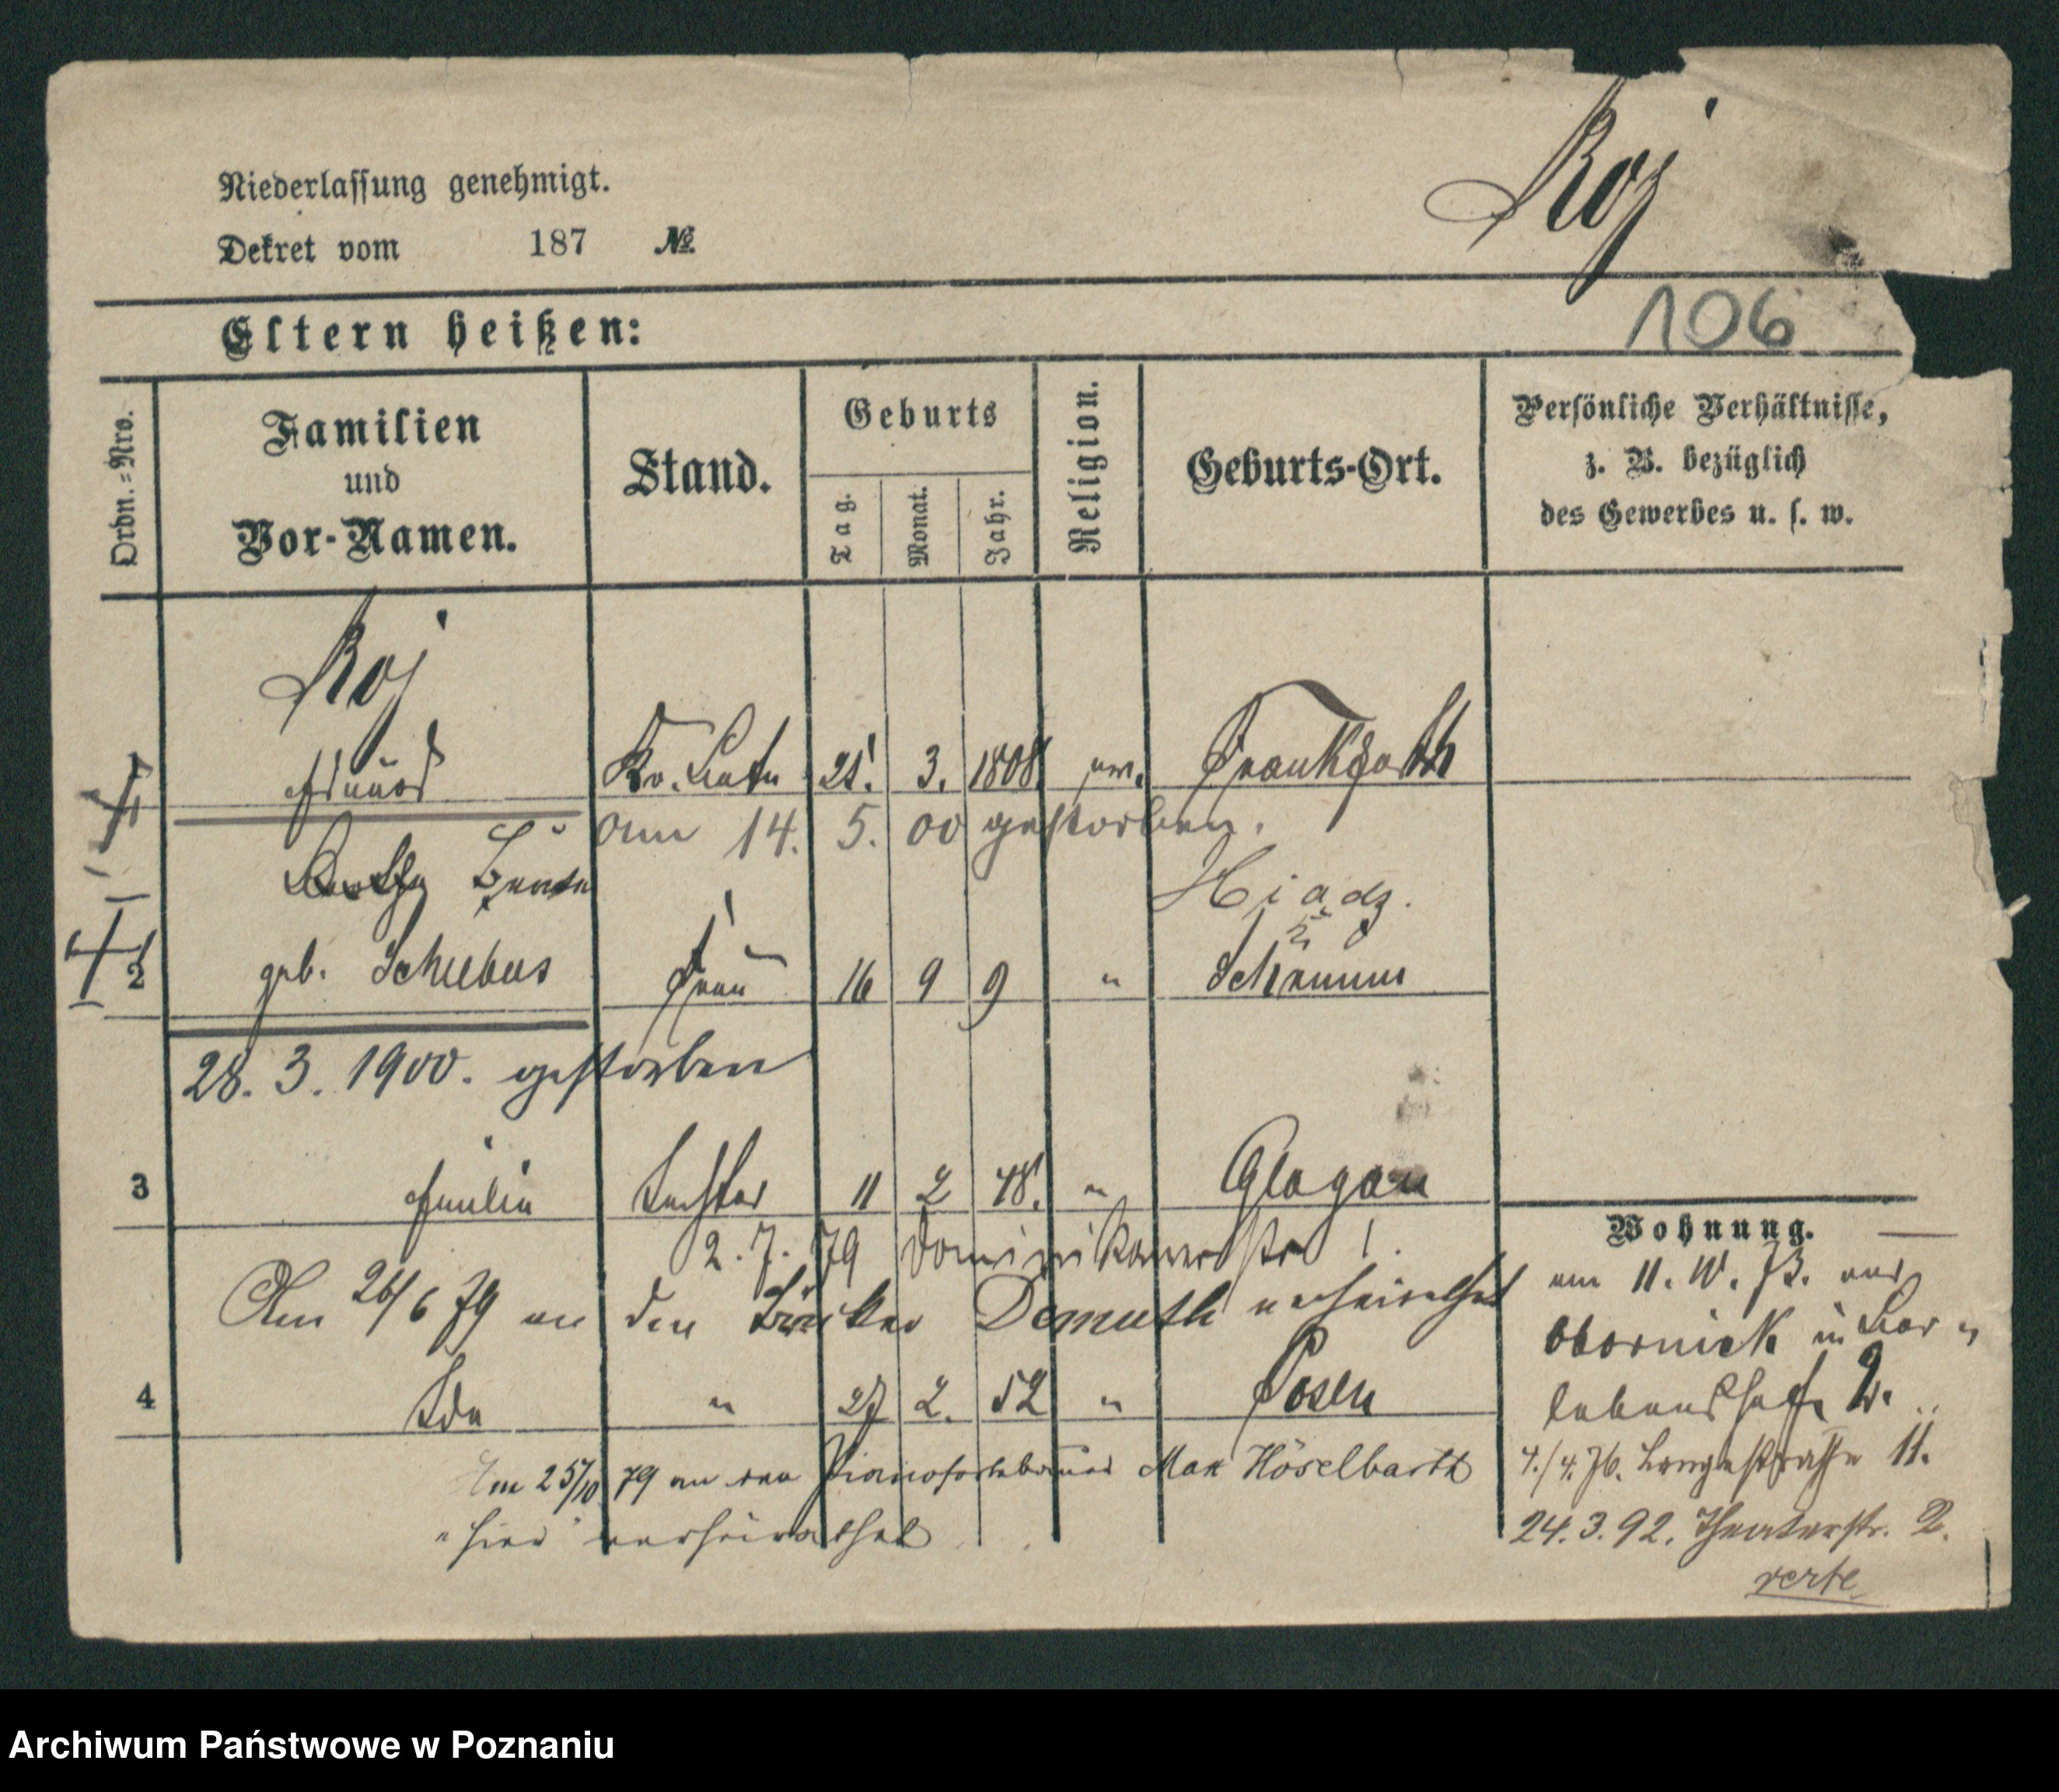 Roj
Niederlassung genehmigt.
Dekret vom 187 №
106
Eltern heißen:
Ordn.-Nro.
Familien
und
Vor-Namen.
Stand.
Geburts
Tag.
Monat.
Jahr.
Religion.
Geburts-Ort.
Persönliche Verhältnisse,
z. B. bezüglich
des Gewerbes u. s. w.
Roj
1 Eduard 21. 3. 1808. ev.
am 14. 5. 00 gestorben.
2 geb. Schiebus Frau 16 9 9 " Schrimm
28. 3. 1900. gestorben
3 Emilie Tochter 11 2 48. " Glogau
2. 7. 79 Dominikanerstr 1.
Am 26/6 79 an den Demuth verheirathet
4 Ida " 27 2. 52 " Posen
Am 25/10 79 an den Pianofortebauer Max Höselbarth
hier verheirathet
Wohnung.
am 11. 10. 73. aus
Obornick in
2.
4./4. 76. Langestraße 11.
24. 3. 92. Theaterstr. 2.
verte
Archiwum Państwowe w Poznaniu